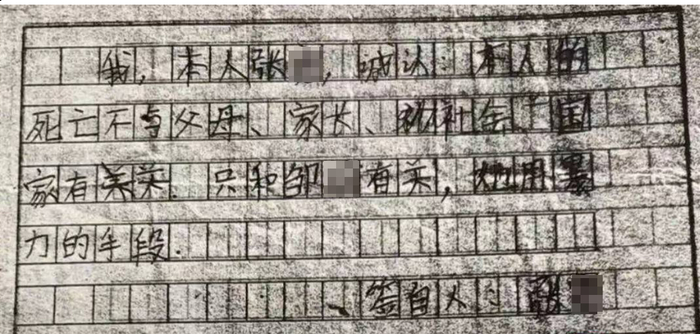 我,本人张,诚认:本人的
死亡不与父母、家长、和社会、国
家有关,只和邹有关,她用暴
力的手段.
签自人:张